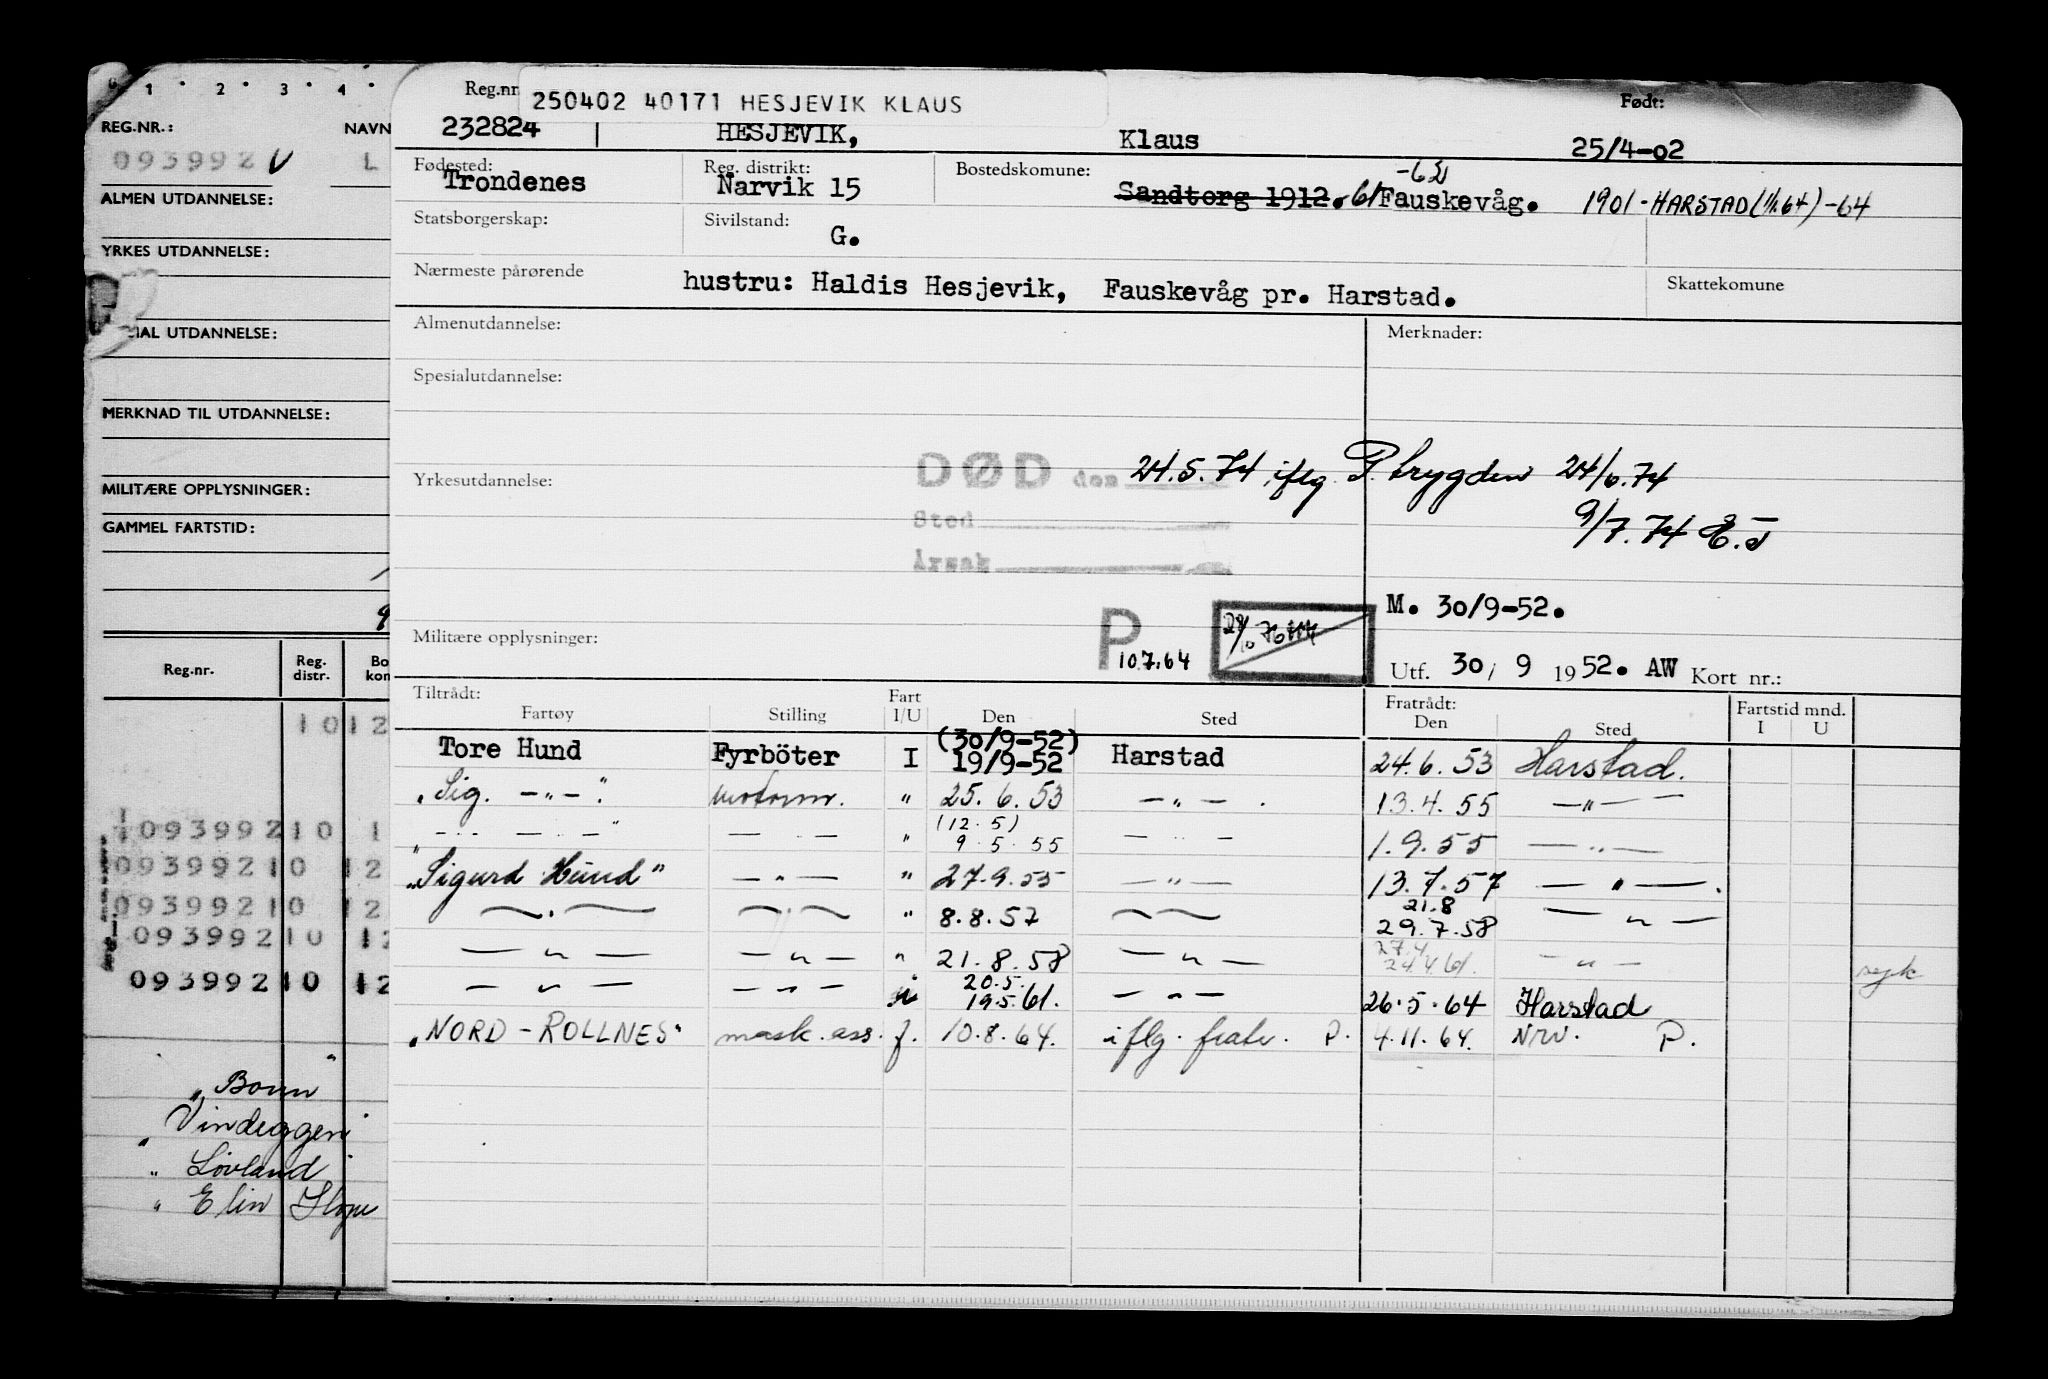 1 2 3 4
REG.NR.: NAVN
093992 V L
ALMEN UTDANNELSE:
YRKES UTDANNELSE:
IAL UTDANNELSE:
MERKNAD TIL UTDANNELSE:
MILITÆRE OPPLYSNINGER:
GAMMEL FARTSTID:
9
Reg.nr. Reg. distr. Bo kon
1012
09399210 1
09399210 12
09399210 12
09399210 12
09399210 12
"
„ Bonn "
„ Vindeggen "
„ Lovland "
„ Elin
Reg.nr
250402 40171 HESJEVIK KLAUS
Født:
232824 HESJEVIK, Klaus 25/4-02
Fødested: Reg. distrikt: Bostedskomune:
-62
Trondenes Narvik 15 Sandtorg 1912. -61 Fauskevåg. 1901 - HARSTAD (1/1.64) -64
Statsborgerskap: Sivilstand:
G.
Nærmeste pårørende hustru: Haldis Hesjevik, Fauskevåg pr. Harstad. Skattekomune
Almenutdannelse: Merknader:
Spesialutdannelse:
Yrkesutdannelse: DØD den 24.5.74 iflg. P. trygden 24/6.74
Sted 9/7.74 E.J
Årsak
M. 30/9-52.
Militære opplysninger: P 10.7.64 28/10 76
Utf. 30/ 9 1952. AW Kort nr.:
Tiltrådt: Fart Fratrådt: Fartstid mnd.
Fartøy Stilling I/U Den Sted Den Sted I U
(30/9-52)
Tore Hund Fyrböter I 19/9-52 Harstad 24.6.53 Harstad.
„Sig. -"-" motorm. " 25.6.53 -"-. 13.4.55 -"-
(12.5)
-"- -"-" -"- " 9.5.55 -"- 1.9.55 -"-
„Sigurd Hund" -"- " 27.9.55 -"- 13.7.57 -"-.
21.8
-"- -"- " 8.8.57 -"- 29.7.58 -"-
27.4
-"- -"- " 21.8.58 -"- 24.4.61. -"- syk
20.5.
-"- -"- i 19.5.61. -"- 26.5.64 Harstad
„NORD-ROLLNES" mask.ass. f. 10.8.64. iflg. fratr. P. 4.11.64. NRV. P.